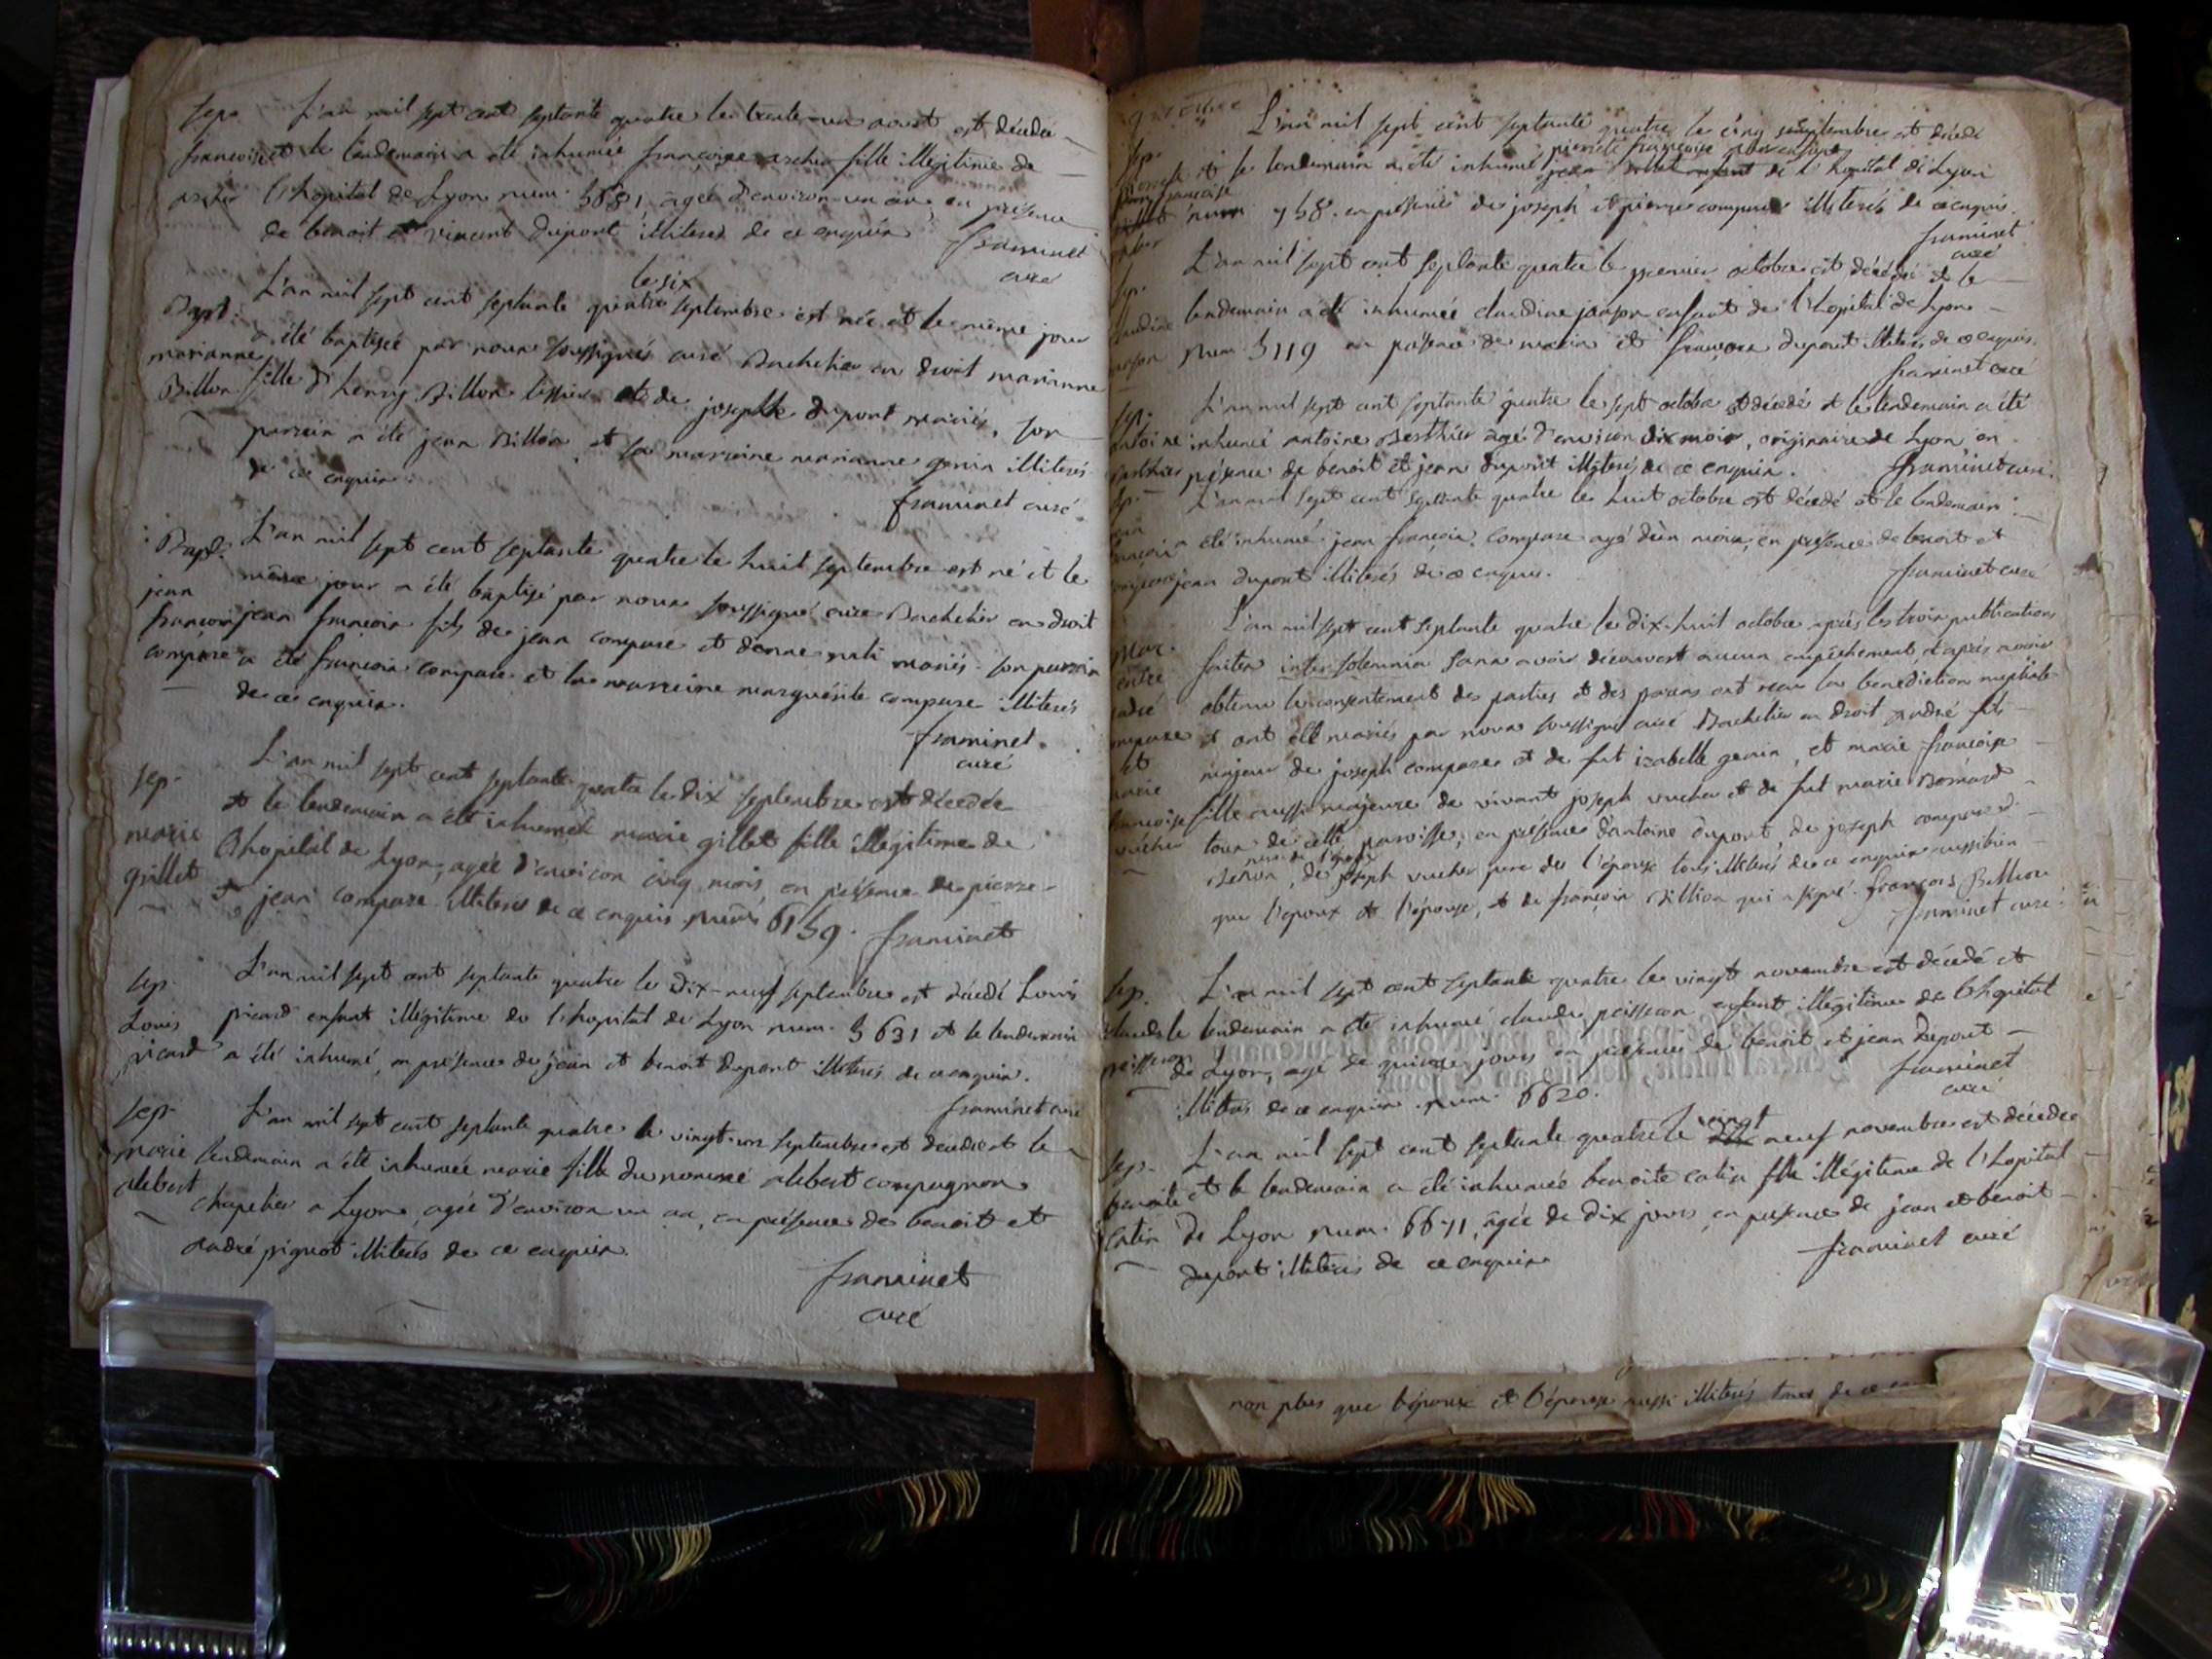 Sep. L'an mil sept cent septante quatre le trente-un aoust est décédée
françoise et le lendemain a été inhumée françoise archer fille illégitime de
archer l'hopital de Lyon num. 5681, agée d'environ un an, en présence
de benoit et vincent dupont illiterés de ce enquis
framinet
curé
le six
L'an mil sept cent septante quatre septembre est née et le même jour
Bapt. a été baptisée par nous soussigné curé Bachelier en droit marianne
marianne
Billon fille d'henry Billon tissier et de josephte dupont mariés, son
parrain a été jean Billon et la marraine marianne genin illiterés
de ce enquis.
framinet curé
Bapt. L'an mil sept cent septante quatre le huit septembre est né et le
jean même jour a été baptisé par nous soussigné curé Bachelier en droit
françois jean françois fils de jean compare et mariés. son parrain
compare a été françois compare et la marreine marguerite compare illiterés
de ce enquis.
framinet
curé
L'an mil sept cent septante quatre le dix septembre est décédée
Sep. et le lendemain a été inhumée marie gillet fille illégitime de
marie l'hopital de Lyon, agée d'environ cinq mois, en présence de pierre
gillet et jean compare illiterés de ce enquis num 6159. framinet
Sep. L'an mil sept cent septante quatre le dix-neuf septembre est décédé Louis
Louis picard enfant illégitime de l'hopital de Lyon num. 5631 et le lendemain
picard a été inhumé, en présence de jean et benoit dupont illiterés de ce enquis.
framinet curé
Sep. L'an mil sept cent septante quatre le vingt-un septembre est décédée et le
marie lendemain a été inhumée marie fille du nommé alibert compagnon
alibert chapelier a Lyon, agée d'environ un an, en présence de benoit et
andré pignot illiterés de ce enquis
framinet
curé
L'an mil sept cent septante quatre le cinq septembre est décédé
Sep. et le lendemain a été inhumé de l'hopital de Lyon
num 758. en présence de joseph et pierre compare illiterés de ce enquis.
framinet
curé
Sep. L'an mil sept cent septante quatre le premier octobre est décédée et le
claudine lendemain a été inhumée claudine janson enfant de l'hopital de Lyon
janson num 5119 en présence de et françois dupont illiterés de ce enquis.
framinet curé
Sep. L'an mil sept cent septante quatre le sept octobre est décédé et le lendemain a été
antoine inhumé antoine Berthier agé d'environ dix mois, originaire de Lyon en
berthier présence de benoit et jean dupont illiterés de ce enquis. framinet curé.
Sep. L'an mil sept cent septante quatre le huit octobre est décédé et le lendemain
jean
françois a été inhumé jean françois compare agé d'un mois, en présence de benoit et
compare jean dupont illiterés de ce enquis.
framinet curé
L'an mil sept cent septante quatre le dix-huit octobre après les trois publications
Mar. faites inter solemnia sans avoir découvert aucun empêchement, et après avoir
entre obtenu le consentement des parties et des parens ont reçu la benediction nuptiale
andré
compare et ont été mariés par nous soussigné curé Bachelier en droit andré fils
et majeur de joseph compare et de fut izabelle genin, et marie françoise
marie
françoise fille aussi majeure de vivant joseph vucher et de fut marie Bornard
vucher tous de cette paroisse, en présence d'antoine dupont, de joseph compare
de joseph vucher pere de l'épouse tous illiterés de ce enquis aussi bien
que l'epoux et l'épouse, et de françois Billion qui a signé. françois Billion
framinet curé.
Sep. L'an mil sept cent septante quatre le vingt novembre est décédé et
claude le lendemain a été inhumé claude poisson enfant illégitime de l'hopital
poisson de Lyon, agé de quinze jours en présence de benoit et jean dupont
illiterés de ce enquis num. 6620.
framinet
curé
L'an mil sept cent septante quatre le vingt neuf novembre est décédée
Sep.
benoite et le lendemain a été inhumée benoite catin fille illégitime de l'hopital
catin de Lyon num. 6671, agée de dix jours, en présence de jean et benoit
dupont illiterés de ce enquis
framinet curé
non plus que l'époux et l'épouse aussi illiterés tous de ce